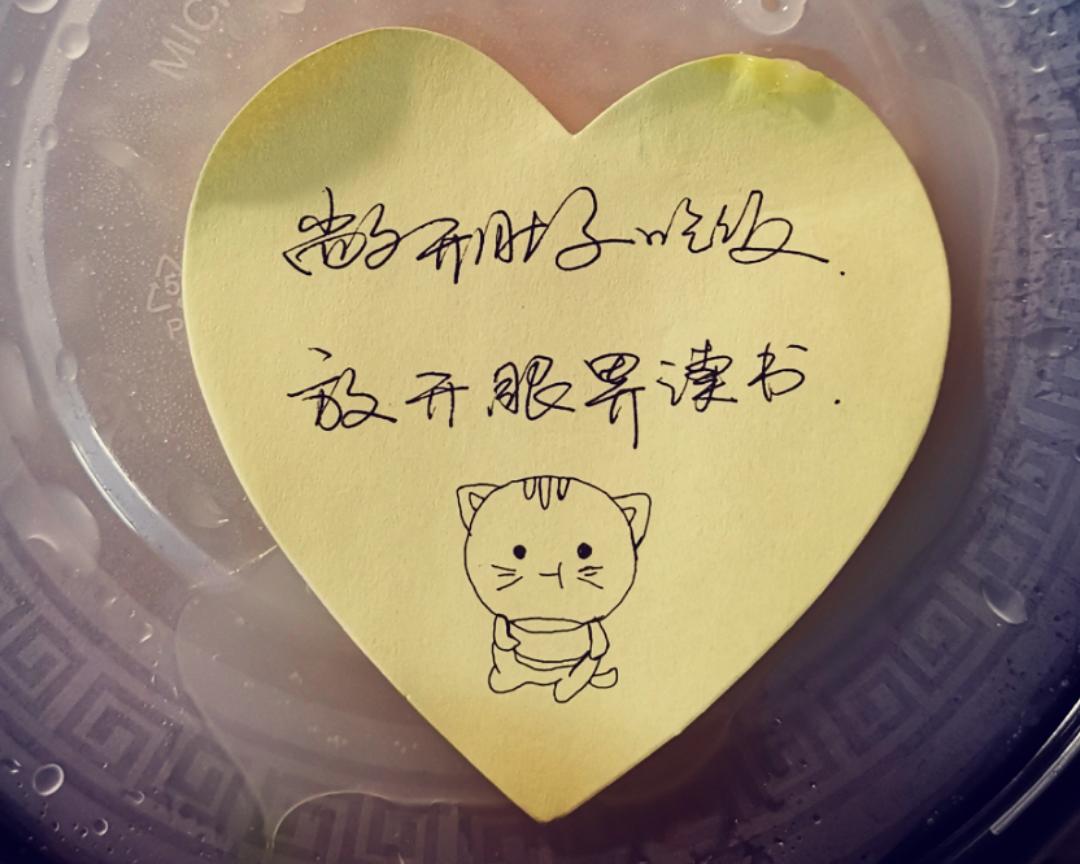 MIC
5
P
敞开肚子吃饭.
放开眼界读书.